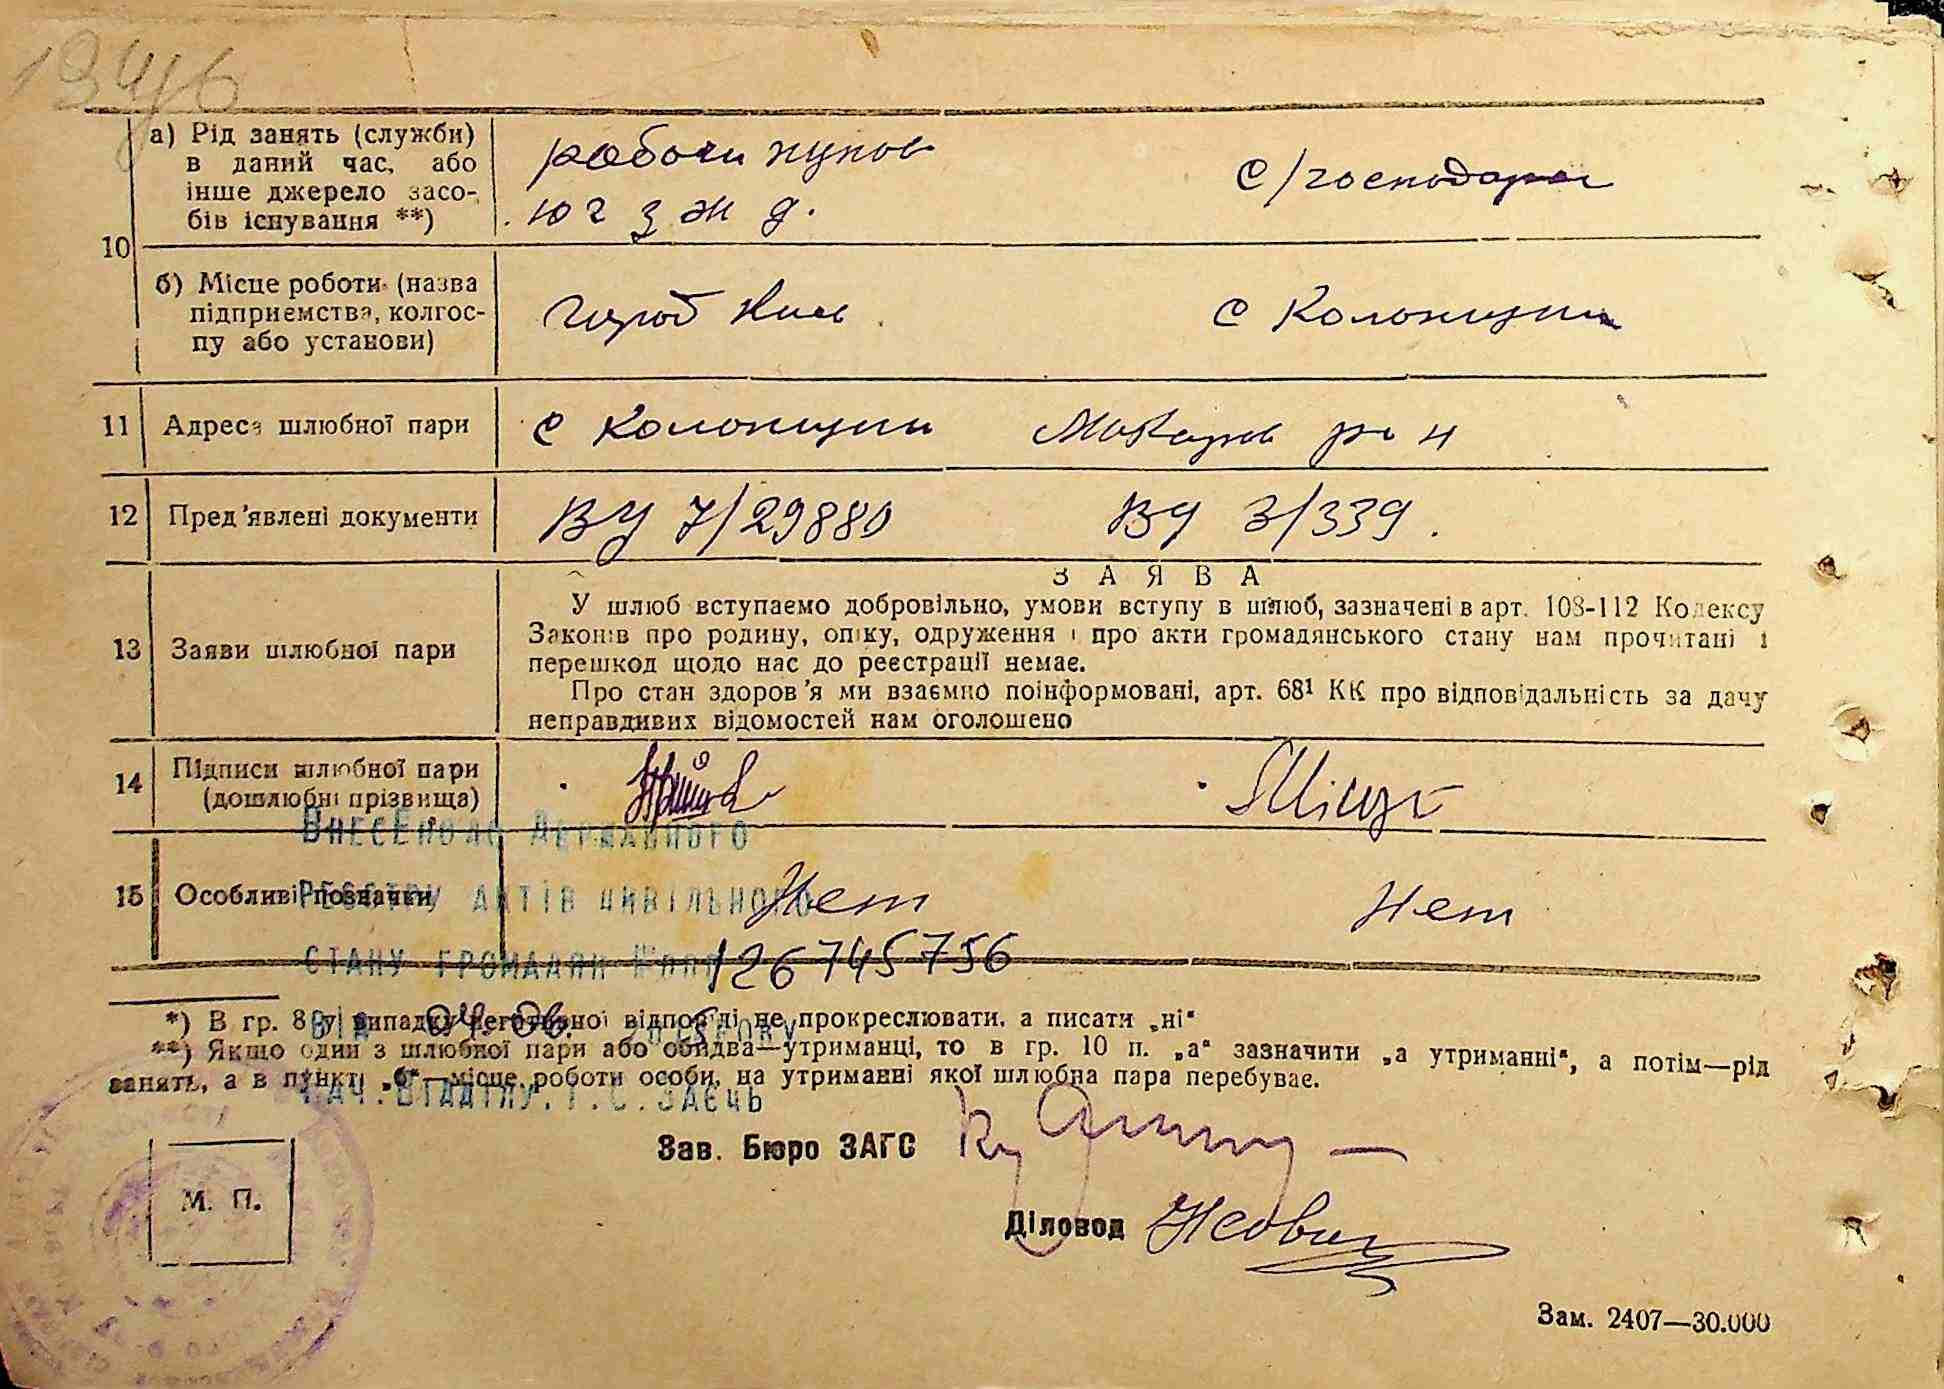 1946
10
а) Рід занять (служби)
в даний час, або
інше джерело засо-
бів існування **)
рабочи
юг з ж д.
с/господарка
б) Місце роботи (назва
підприємства, колгос-
пу або установи)
город Киев
с Колонщини
11 Адреса шлюбної пари
с Колонщини Макаров р-н
12 Пред'явлені документи
ВУ 7/29880
ВУ 3/339.
13 Заяви шлюбної пари
ЗАЯВА
У шлюб вступаємо добровільно, умови вступу в шлюб, зазначені в арт. 108-112 Кодексу
Законів про родину, опіку, одруження і про акти громадянського стану нам прочитані і
перешкод щодо нас до реєстрації немає.
Про стан здоров'я ми взаємно поінформовані, арт. 68¹ КК про відповідальність за дачу
неправдивих відомостей нам оголошено
14 Підписи шлюбної пари
(дошлюбні прізвища)
Міщук
Внесено до Державного
15 Особливі позначки
Нет
Нет
реєстру актів цивільного
стану громадян 126745756
*) В гр. 8 у випадку негативної відповіді не прокреслювати, а писати „ні“
від 04.06. року
**) Якщо один з шлюбної пари або обидва—утриманці, то в гр. 10 п. „а“ зазначити „а утриманні“, а потім—рід
занять, а в пункті „б“—місце роботи особи, на утриманні якої шлюбна пара перебуває.
Нач. відділу. Г.С. Заєць
Зав. Бюро ЗАГС
М. П.
Діловод
Зам. 2407—30.000